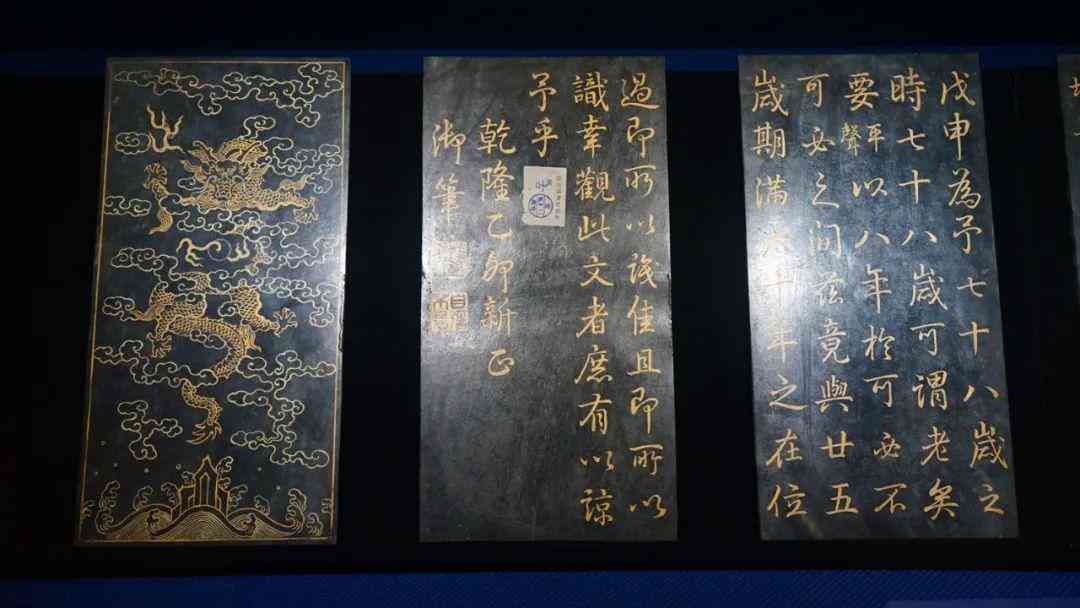 戊申為予七十八歲之
時七十八歲可謂老矣
要以八年於可必不
可必之間茲竟與廿五
歲期滿六十年之在位
過即所以誌佳且即所以
識幸觀此文者庶有以諒
予乎
乾隆乙卯新正
御筆